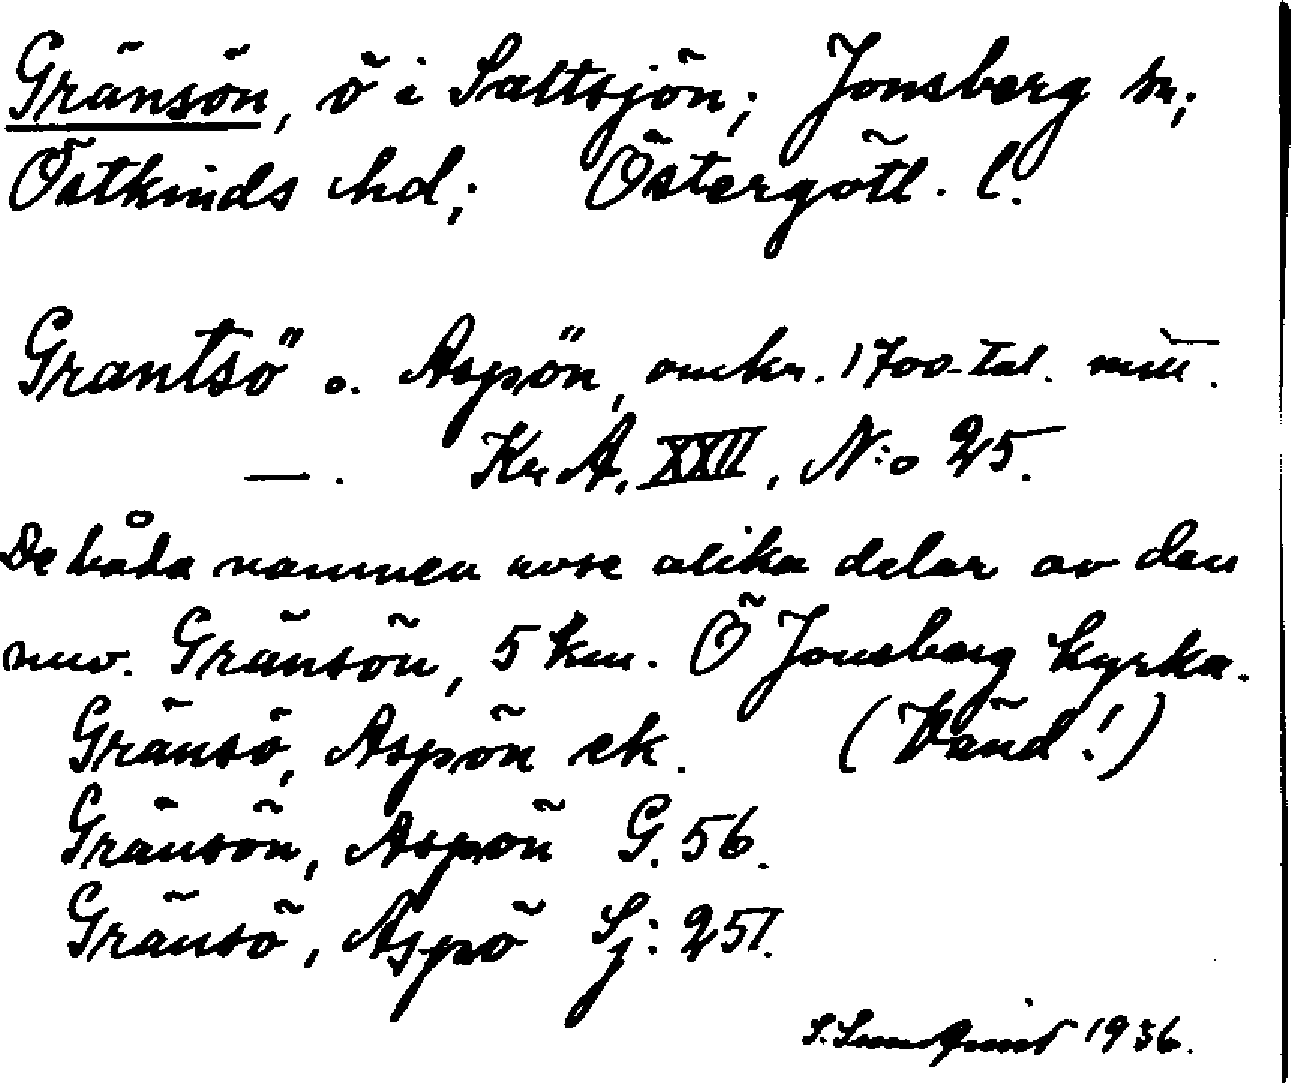 Gränsön, ö i Saltsjön; Jonsberg sn;
Östkinds hd; Östergötl. l.
Grantsö o. Aspön, omkr. 1700-tal. mitt.
—. Kr A, XXII, N:o 25.
De båda namnen avse olika delar av den
nuv. Gränsön, 5 km. Ö Jonsberg kyrka.
Gränsö, Aspön ek. (Vänd!)
Gränsön, Aspön G. 56.
Gränsö, Aspö Sj: 251.
S. 1936.